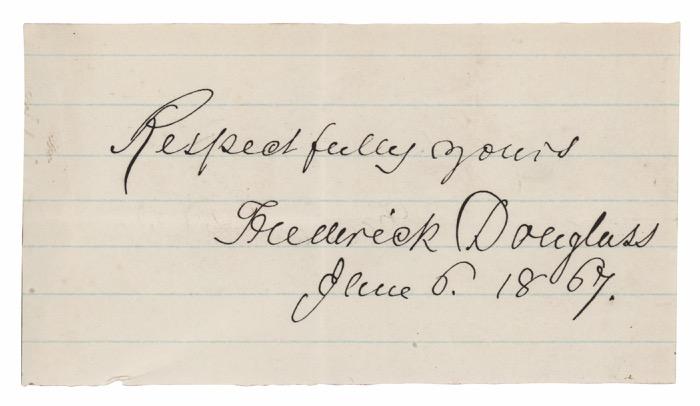 Respectfully yours
Frederick Douglass
June 6. 1867.